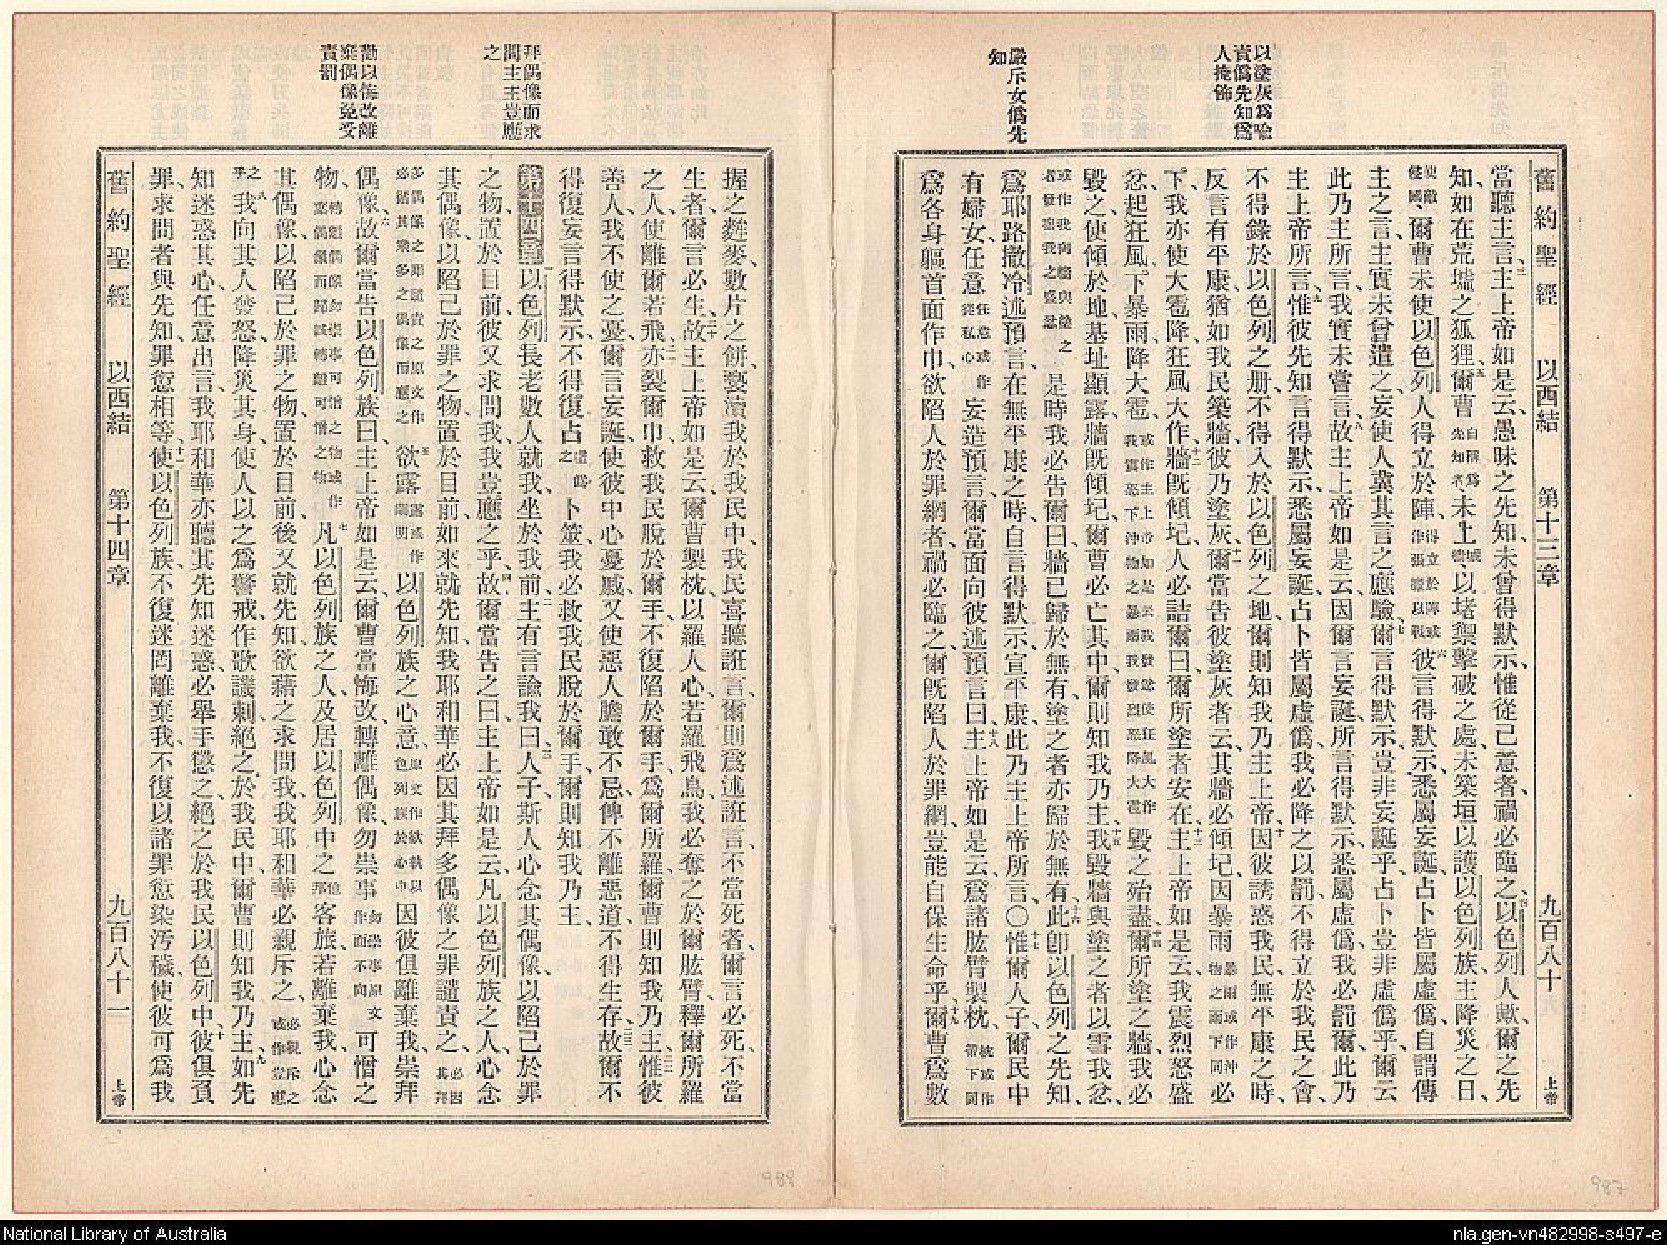 以塗灰爲喩
責僞先知爲
人掩飾
嚴斥女僞先
知
舊約聖經 以西結 第十三章 九百八十 上帝
當聽主言、三主上帝如是云、愚昧之先知、未曾得默示、惟從己意者、禍必臨之、四以色列人歟、爾之先
知、如在荒墟之狐狸、五爾曹自稱爲先知者未上城墻以堵禦擊破之處、未築垣以護以色列族、主降災之日、
使敵侵國、爾曹未使以色列人得立於陣、得立於陣或作張墻以戰六彼言得默示、悉屬妄誕、占卜皆屬虛僞、自謂傳
主之言、主實未曾遣之、妄使人冀其言之應驗、七爾言得默示、豈非妄誕乎、占卜豈非虛僞乎、爾云
此乃主所言、我實未嘗言、八故主上帝如是云、因爾言妄誕、所言得默示、悉屬虛僞、我必罰爾、此乃
主上帝所言、九惟彼先知言得默示、悉屬妄誕、占卜皆屬虛僞、我必降之以罰、不得立於我民之會、
不得錄於以色列之册、不得入於以色列之地、爾則知我乃主上帝、十因彼誘惑我民、無平康之時、
反言有平康、猶如我民築牆、彼乃塗灰、十一爾當告彼塗灰者云、其牆必傾圮、因暴雨暴雨或作沖物之雨下同必
下、我亦使大雹降、狂風大作、十二牆旣傾圮、人必詰爾曰、爾所塗者安在、十三主上帝如是云、我震烈怒、盛
忿、起狂風、下暴雨、降大雹、或作主上帝如是云我發忿使狂風大作我震怒下沖物之暴雨我發烈怒降大雹毀之殆盡、十四爾所塗之牆、我必
毀之、使傾於地、基址顯露、牆旣傾圮、爾曹必亡其中、爾則知我乃主、十五我毀牆與塗之者、以雪我忿、
或作我向牆與塗之者發盡我之盛忿是時我必告爾曰、牆已歸於無有、塗之者亦歸於無有、十六此卽以色列之先知、
爲耶路撒冷述預言、在無平康之時、自言得默示、宣平康、此乃主上帝所言、〇十七惟爾人子、爾民中
有婦女、任意任意或作從私心妄造預言、爾當面向彼述預言曰、十八主上帝如是云、爲諸肱臂製枕、枕或作帶下同
爲各身軀首面作巾、欲陷人於罪網者、禍必臨之、爾旣陷人於罪網、豈能自保生命乎、十九爾曹爲數
987
拜偶像而求
問主主豈應
之
勸以悔改離
棄偶像免受
責罰
握之麰麥、數片之餅、褻瀆我於我民中、我民喜聽誑言、爾則爲述誑言、不當死者、爾言必死、不當
生者、爾言必生、二十故主上帝如是云、爾曹製枕、以羅人心、若羅飛鳥、我必奪之於爾肱臂、釋爾所羅
之人、使離爾若飛、二一亦裂爾巾、救我民脫於爾手、不復陷於爾手、爲爾所羅、爾曹則知我乃主、二二惟彼
善人、我不使之憂、爾言妄誕、使彼中心憂戚、又使惡人膽敢不忌憚、不離惡道、不得生存、二三故爾不
得復妄言得默示、不得復占虛僞之卜筮、我必救我民脫於爾手、爾則知我乃主、
第十四章一以色列長老數人就我、坐於我前、二主有言諭我曰、三人子、斯人心念其偶像、以陷己於罪
之物、置於目前、彼又求問我、我豈應之乎、四故爾當告之曰、主上帝如是云、凡以色列族之人、心念
其偶像、以陷己於罪之物、置於目前、如來就先知、我耶和華必因其拜多偶像之罪譴責之、
五欲露以色列族之心意、因彼俱離棄我、崇拜
偶像、六故爾當告以色列族曰、主上帝如是云、爾曹當悔改、轉離偶像、勿崇事可憎之
物、七凡以色列族之人、及居以色列中之他邦客旅、若離棄我、心念
其偶像、以陷己於罪之物、置於目前、後又就先知、欲藉之求問我、我耶和華必親斥之、必親斥之或作豈應
之乎八我向其人發怒、降災其身、使人以之爲警戒、作歌譏刺、絕之於我民中、爾曹則知我乃主、九如先
知迷惑其心、任意出言、我耶和華亦聽其先知迷惑、必舉手懲之、絕之於我民以色列中、十彼俱負
罪、求問者與先知、罪愆相等、十一使以色列族、不復迷罔離棄我、不復以諸罪愆染汚穢、使彼可爲我
舊約聖經 以西結 第十四章 九百八十一 上帝
988
National Library of Australia
nla.gen-vn482998-s497-e